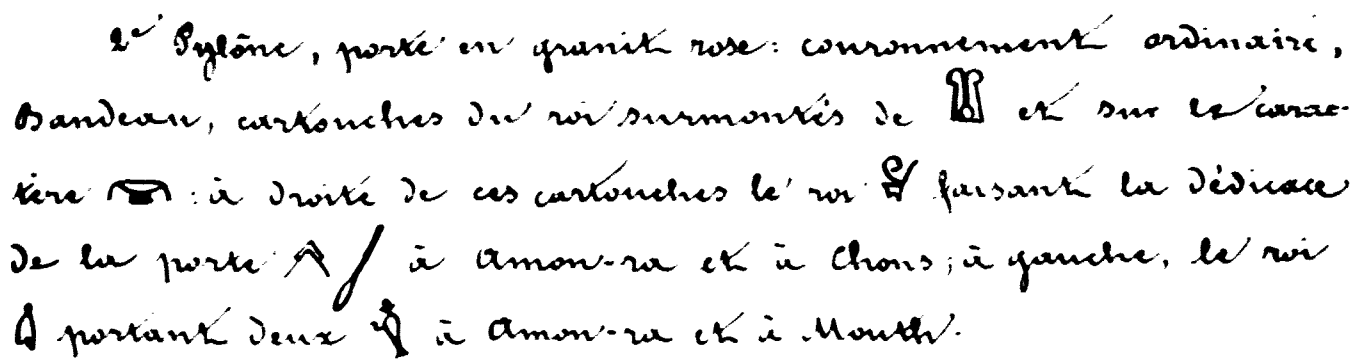 2e Pylône, porte en granit rose: couronnement ordinaire,
Bandeau, cartouches du roi surmontés de et sur le carac-
tère : à droite de ces cartouches le roi faisant la dédicace
de la porte à Amon-ra et à Chons; à gauche, le roi
portant deux à Amon-ra et à Mouth.